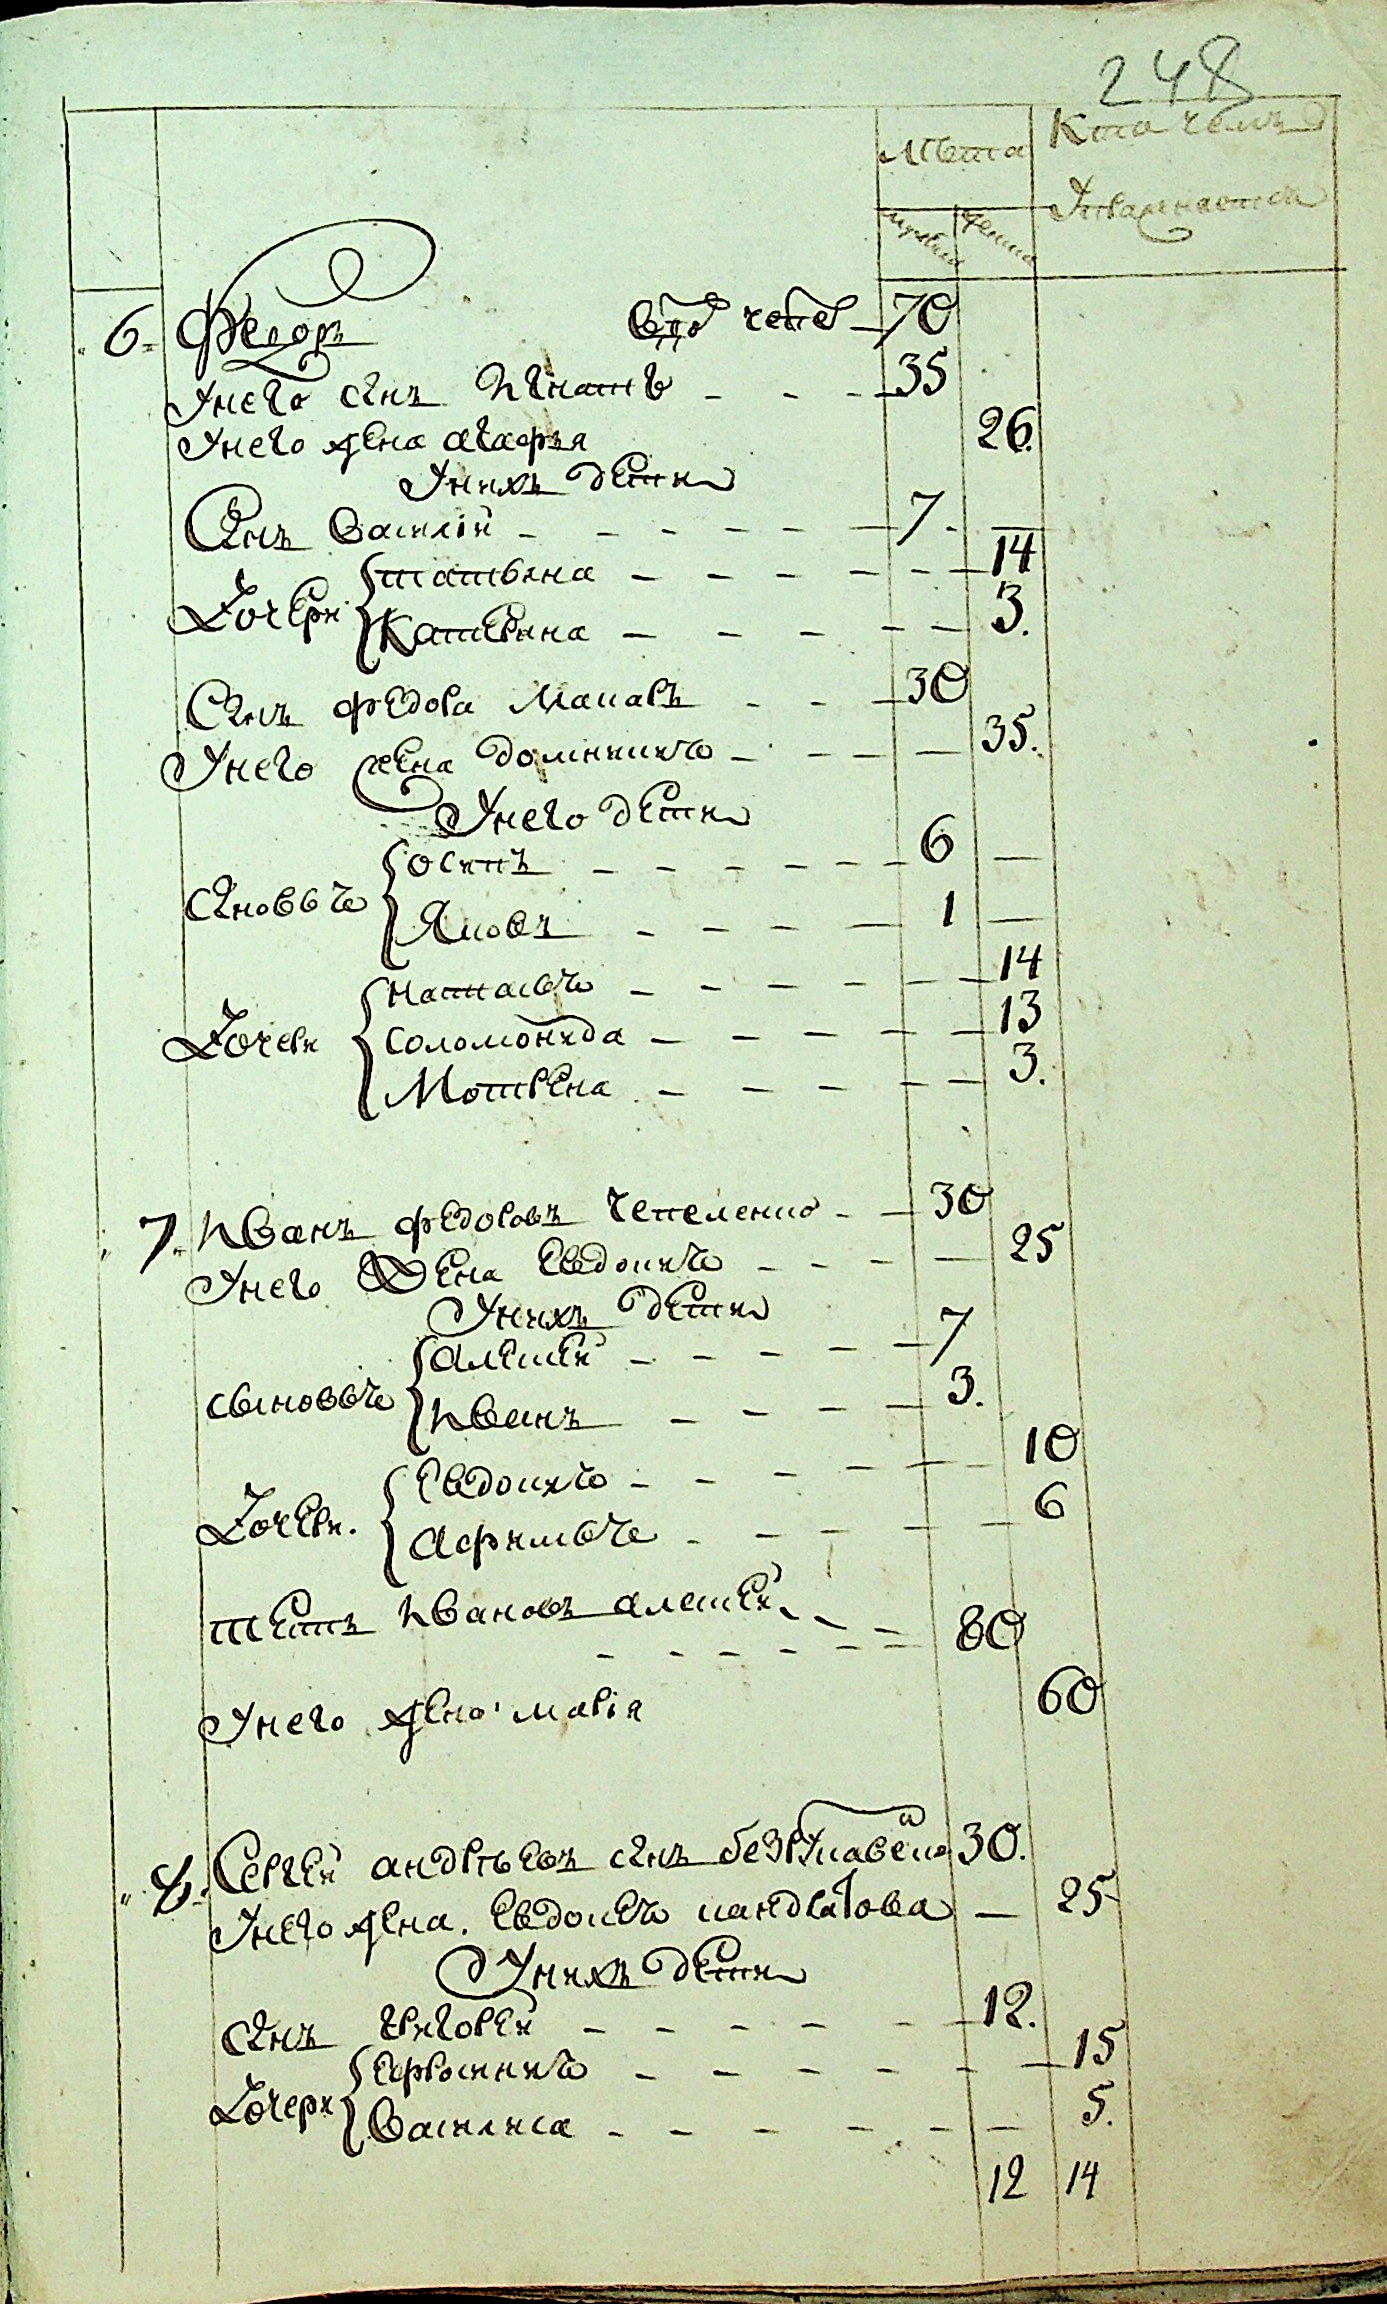 248
Лета
Кто чемъ
мужска
женска
6. Федоръ 70
У него сынъ Игнатъ 35
У него жена агафья 26.
У нихъ дети
Сынъ Василiй 7.
Дочери татьяна 14
Катерина 3.
Сынъ федора Макаръ 30
У него жена домникия 35.
У него дети
сыновья осипъ 6
Яковъ 1
Дочери наталья 14
соломонида 13
Мотрена 3.
7. Иванъ федоровъ Чепеленко 30
У него жена евдокия 25
У нихъ дети
сыновья алексей 7
Иванъ 3.
Дочери. евдокия 10
афимья 6
тесть Ивановъ алексей
80
У него жена марiя 60
8. Сергей андреевъ сынъ 30.
У него жена. евдокея 25
У нихъ дети
сынъ григорей 12.
Дочери ефросиния 15
Василиса 5.
12 14